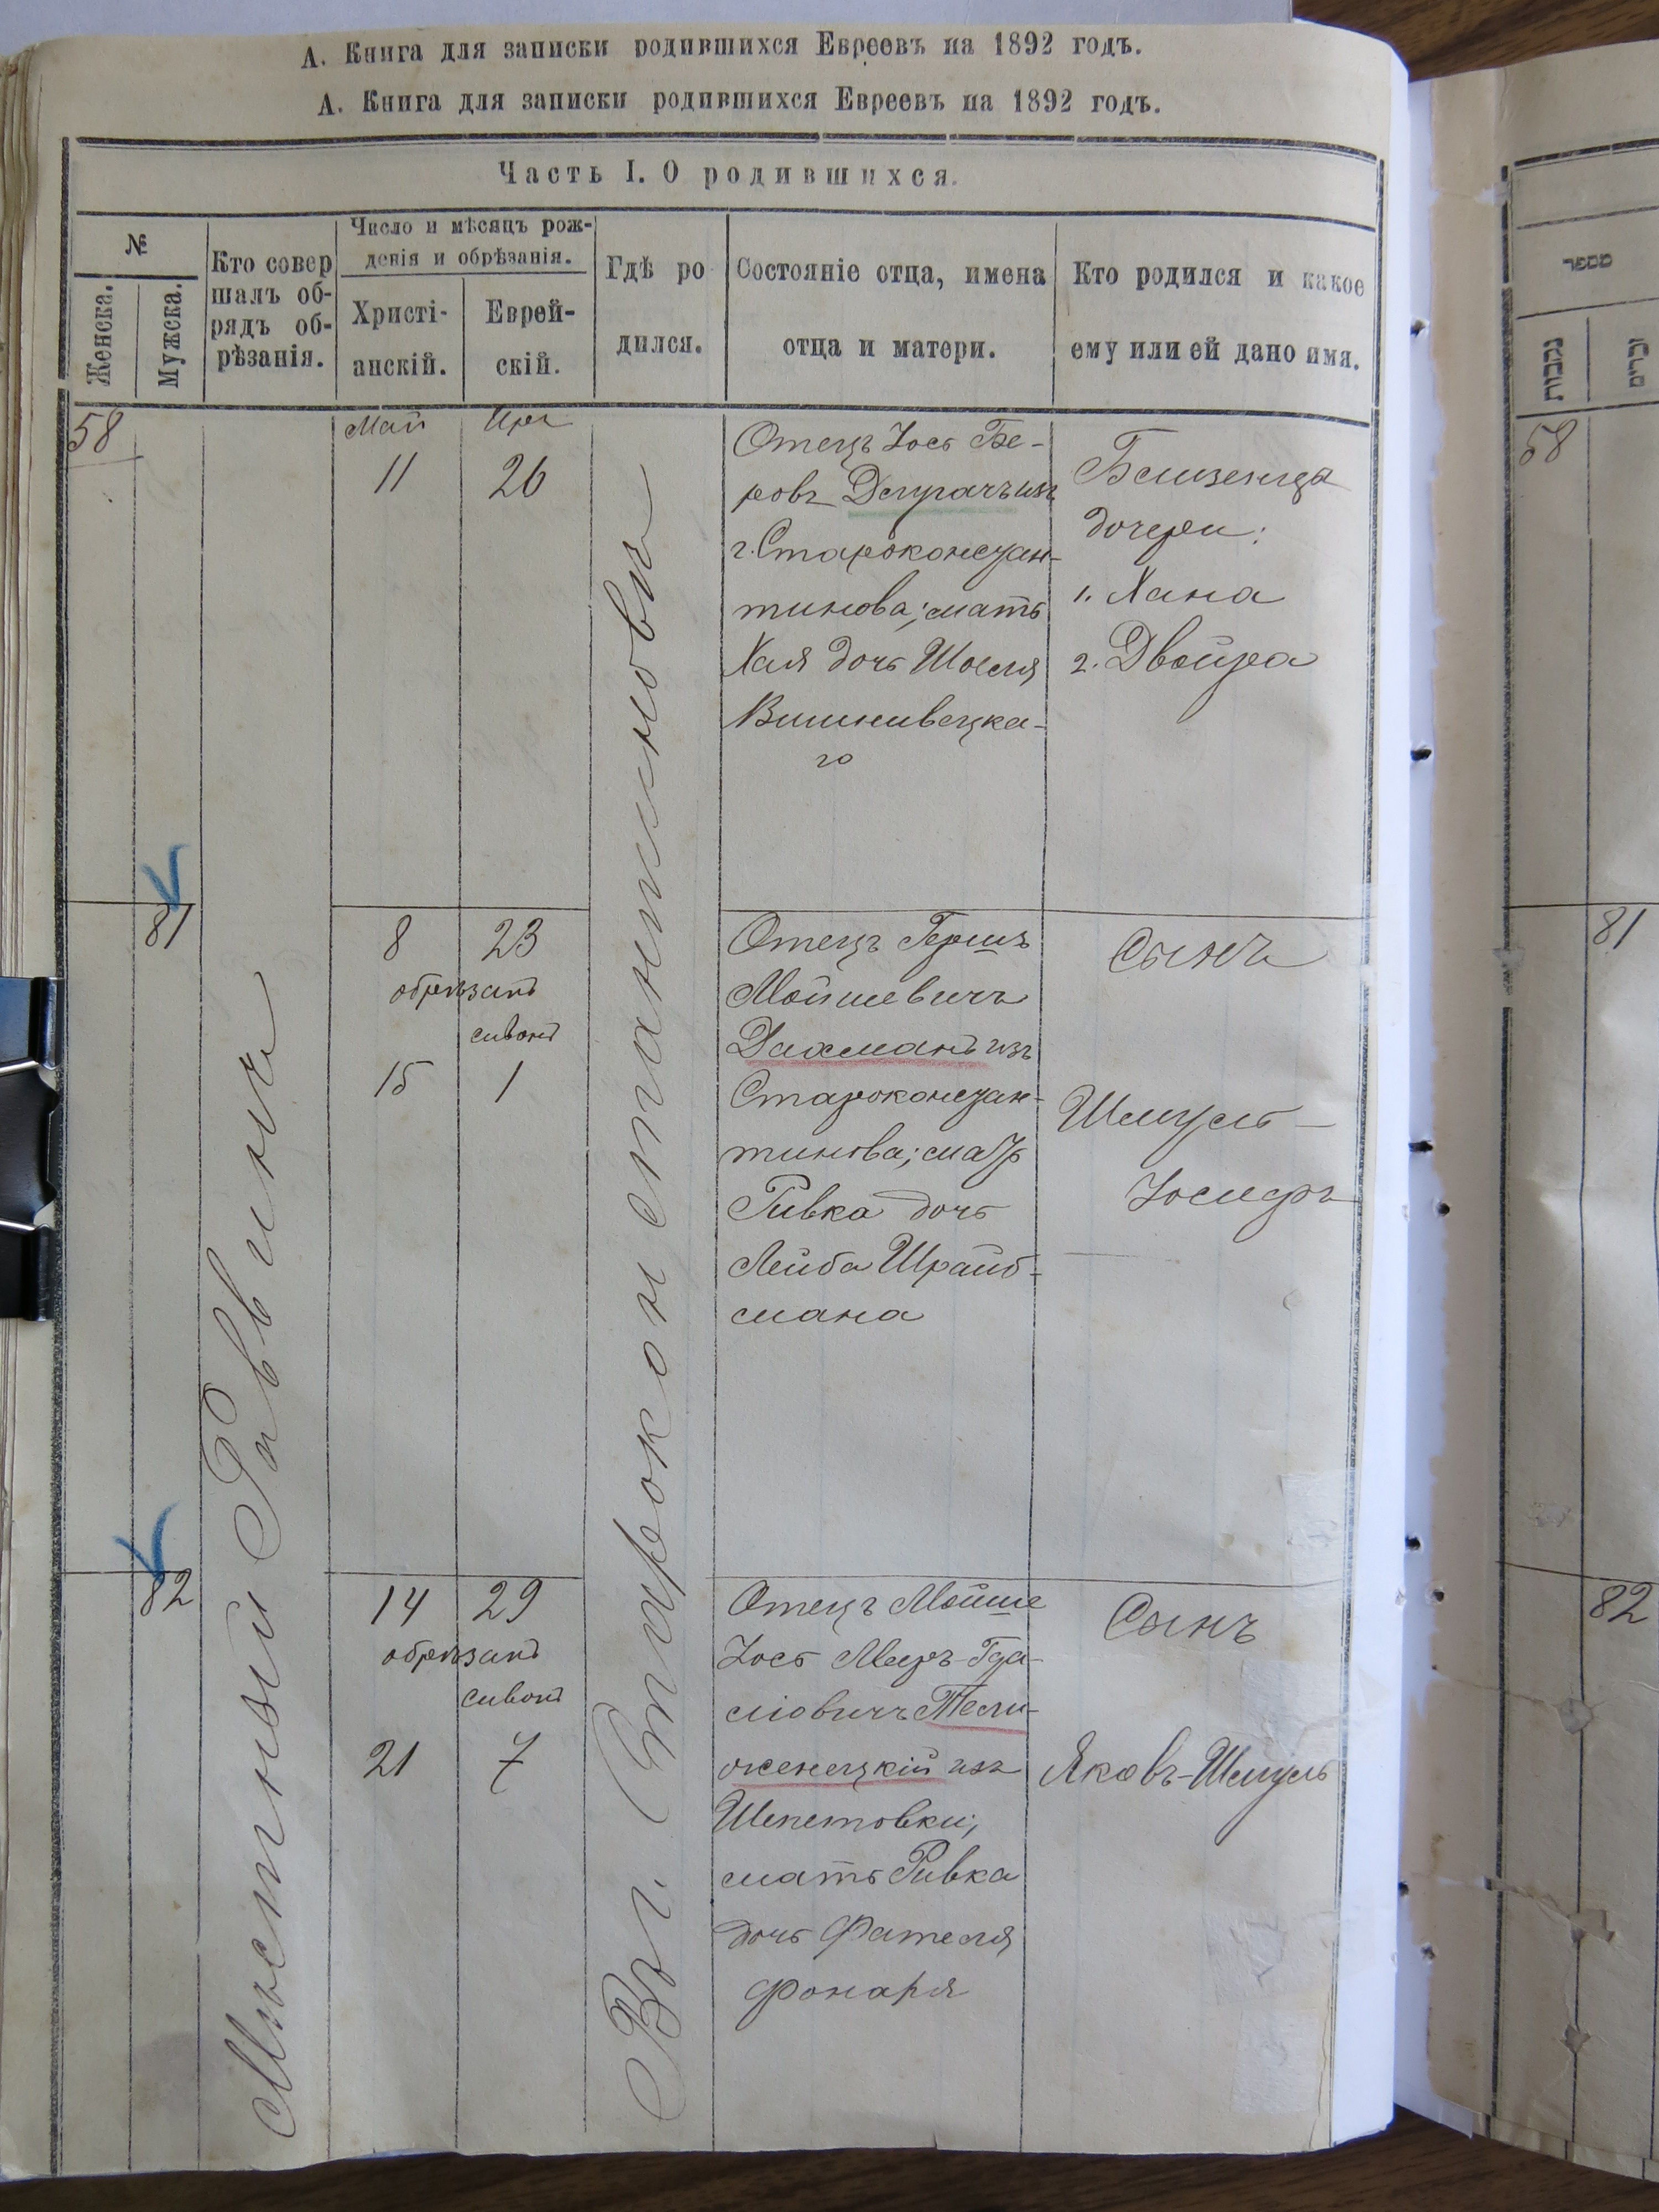 А. Книга для записки родившихся Евреевъ на 1892 годъ.
А. Книга для записки родившихся Евреевъ на 1892 годъ.
Часть I. О родившихся.
№
Женска.
Мужска.
Кто совер
шалъ об-
рядъ об-
рѣзанія.
Число и мѣсяцъ рож-
денія и обрѣзанія.
Христі-
анскій.
Еврей-
скій.
Гдѣ ро
дился.
Состояніе отца, имена
отца и матери.
Кто родился и какое
ему или ей дано имя.
Мѣстный Раввинъ
Въ г. Староконстантиновѣ
58
Май
11
26
Отецъ Іось Бе-
ровъ изъ
г. Староконстан-
тинова; мать
Хая дочь
Вишнивецка-
го
Близнецы
дочери:
1. Хана
2. Двойра
81
8
23
обрѣзанъ
сивонъ
15
1
Отецъ Гершъ
Мойшевичъ
Дахманъ изъ
Староконстан-
тинова; мать
Ривка дочь
Лейба Шрайб-
мана
Сынъ
Шмуль-
Іосифъ
82
14
29
обрѣзанъ
сивонъ
21
7
Отецъ Мойше
Іось Мееръ Гда-
ліовичъ Тели-
женецкій изъ
Шепетовки;
мать Ривка
дочь Фателя
Фонаря
Сынъ
Яковъ-Шмуль
מספר
נקבות
זכרים
58
81
82